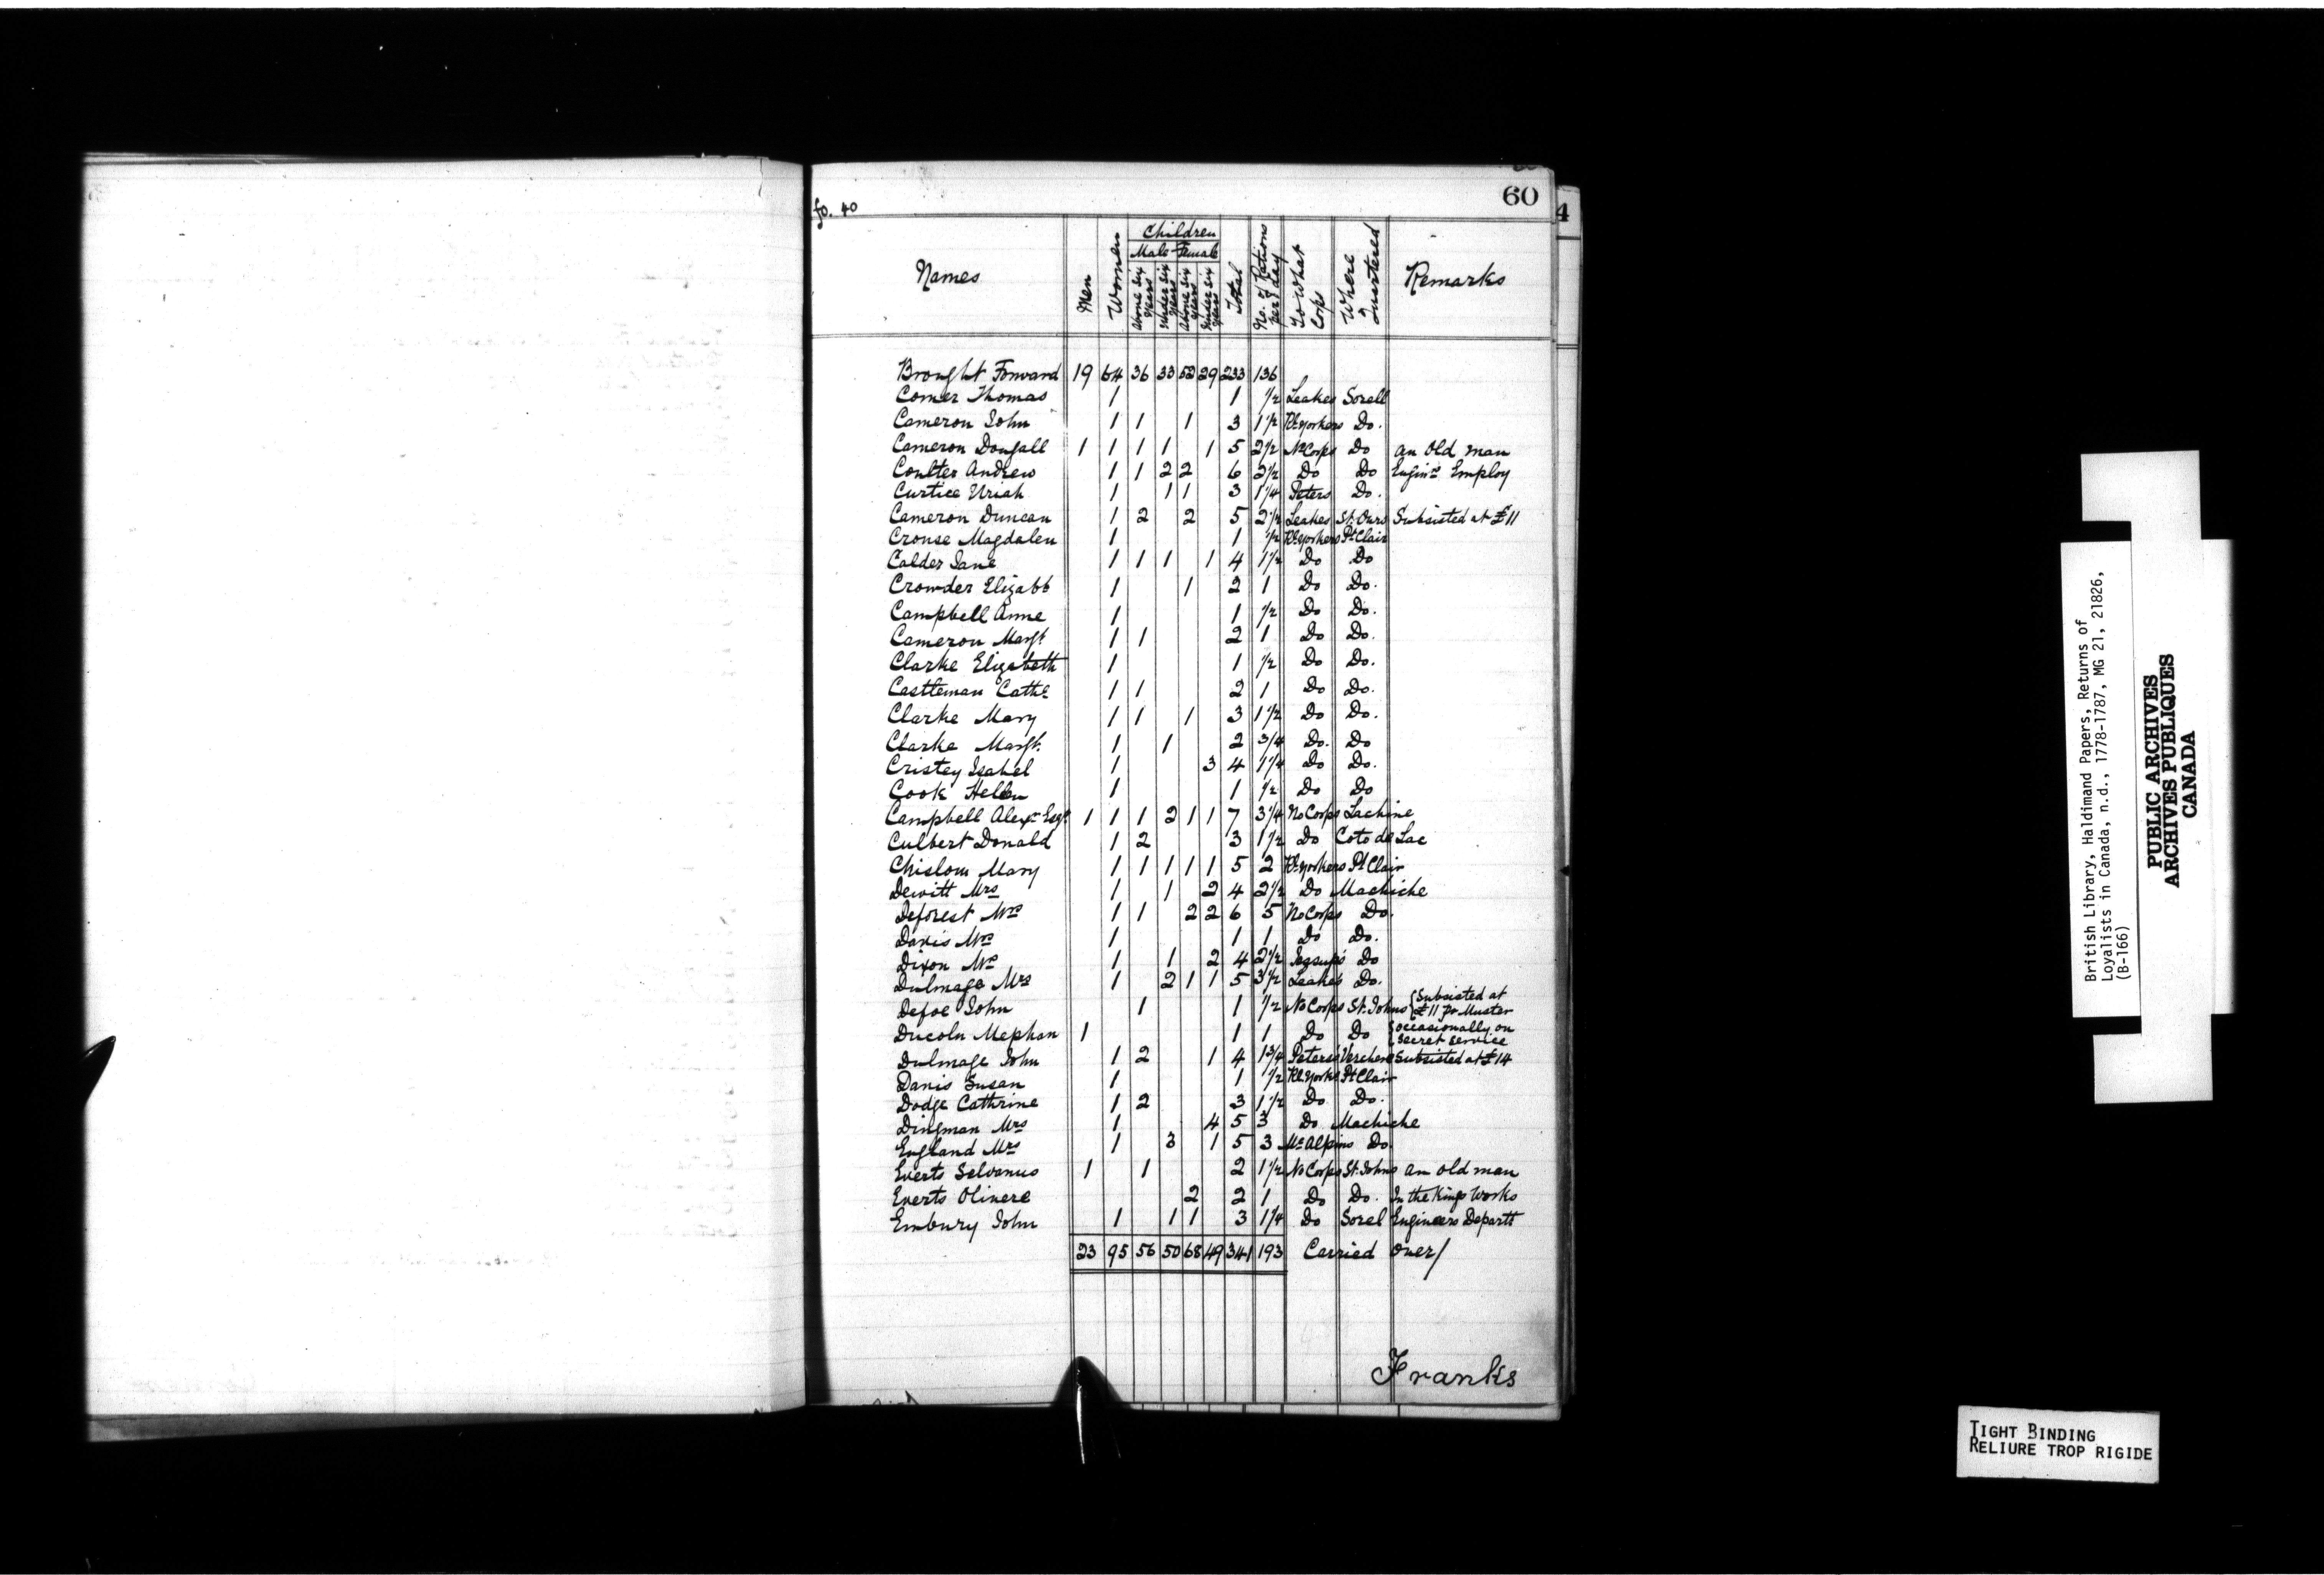 60
4
fo. 40
Names Men Women Children Male Female above six years under six years above six years under six years Total No. of Rations per day To What Corps Where Quartered Remarks
Brought Forward 19 64 36 33 52 29 233 136
Comer Thomas 1 1 1/2 Leakes Sorell
Cameron John 1 1 1 3 1 1/2 Rl. Yorkers Do.
Cameron Dougall 1 1 1 1 1 5 2 1/2 No Corps Do an Old man
Coulter Andrew 1 1 2 2 6 2 1/2 Do Do Engin.rs Employ
Curtice Uriah 1 1 1 3 1 1/4 Peters Do.
Cameron Duncan 1 2 2 5 2 1/2 Leakes St. Ours Subsisted at £11
Crouse Magdalen 1 1 1/2 Rl. Yorkers Pt Clair
Calder Jane 1 1 1 1 4 1 1/2 Do Do
Crowder Elizabb 1 1 2 1 Do Do.
Campbell Anne 1 1 1/2 Do Do.
Cameron Margt. 1 1 2 1 Do Do.
Clarke Elizabeth 1 1 1/2 Do Do.
Castleman Cathe 1 1 2 1 Do Do.
Clarke Mary 1 1 1 3 1 1/2 Do Do.
Clarke Margt. 1 1 2 3/4 Do. Do
Cristey Isabel 1 3 4 1 1/4 Do Do.
Cook Hellen 1 1 1/2 Do Do
Campbell Alexr Esqr. 1 1 1 2 1 1 7 3 1/4 No Corps Lachine
Culbert Donald 1 2 3 1 1/2 Do Coto de Lac
Chislom Mary 1 1 1 1 1 5 2 Rl. Yorkers Pt Clair
Dewitt Mrs 1 1 2 4 2 1/2 Do Machiche
Deforest Mrs 1 1 2 2 6 5 No Corps Do.
Davis Mrs 1 1 1 Do Do.
Dixon Mrs 1 1 2 4 2 1/2 Jessups Do
Dulmage Mrs 1 2 1 1 5 3 1/2 Leakes Do.
Defoe John 1 1 1/2 No Corps St. Johns {Subsisted at
£11 pr Muster
Ducoln Mephan 1 1 1 Do Do {occasionally on
Secret Service
Dulmage John 1 2 1 4 1 3/4 Peters's Verchere Subsisted at £14
Danis Susan 1 1 1/2 Rl. Yorks Pt Clair
Dodge Cathrine 1 2 3 1 1/2 Do Do.
Dingman Mrs 1 4 5 3 Do Machiche
England Mrs 1 3 1 5 3 McAlpins Do.
Everts Selvanus 1 1 2 1 1/2 No Corps St. Johns an old man
Everts Olivere 2 2 1 Do Do. In the Kings Works
Embury John 1 1 1 3 1 1/4 Do Sorel Engineers Departt
23 95 56 50 68 49 341 193 Carried over/
Franks
British Library, Haldimand Papers, Returns of
Loyalists in Canada, n.d., 1778-1787, MG 21, 21826,
(B-166)
PUBLIC ARCHIVES
ARCHIVES PUBLIQUES
CANADA
TIGHT BINDING
RELIURE TROP RIGIDE